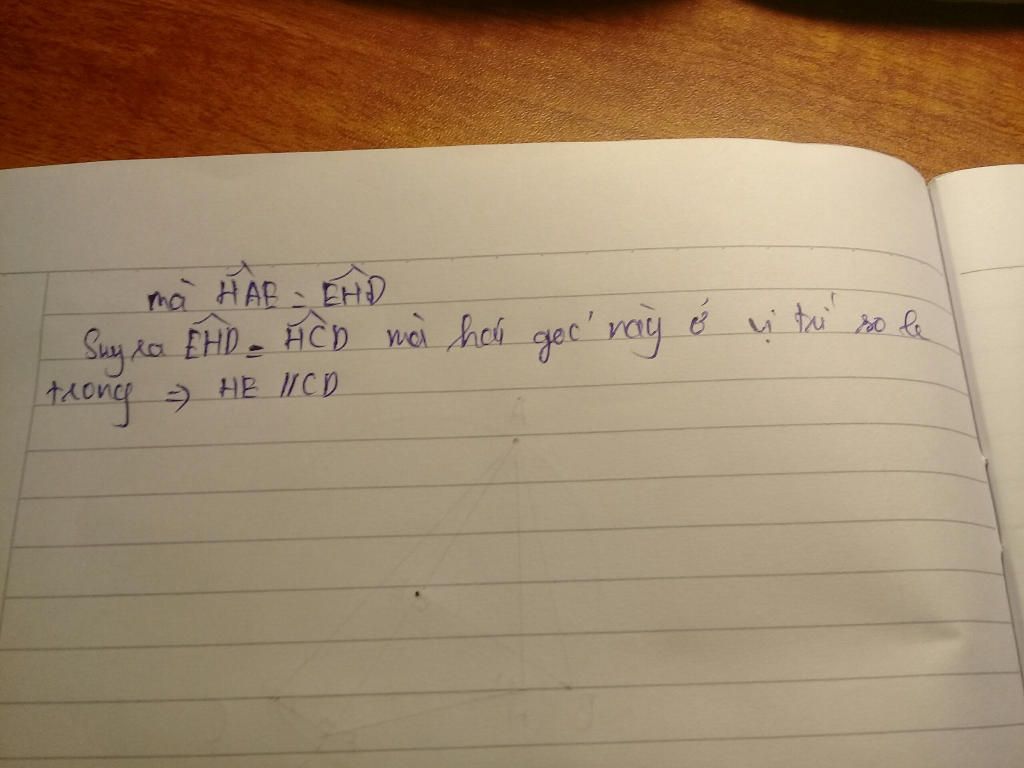 mà HAE = EHD
Suy ra EHD = HCD mà hai góc này ở vị trí so le
trong => HE // CD